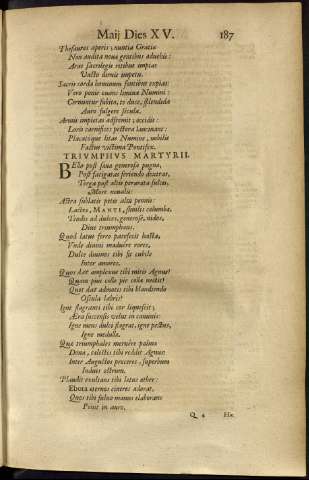 Maij Dies XV. 187
Thesauros aperis; nuntia Gratiæ
Non audita noua gentibus aduehis:
Aras sacrilegis ritibus impias
Vasto diruis impetu.
Sacris corda hominum fontibus expias:
Vero ponis ouans limina Numini:
Cernuntur subito, te duce, splendida
Auro fulgere sæcula.
Armis impietas adfremit; occidis:
Loris carnifices pectora lancinant:
Placatque litas Numine, nobilis
Factus victima Pontifex.
TRIVMPHVS MARTYRII.
BElla post sæua generose pugna,
Post fatigatas feriendo dextras,
Terga post altis perarata sulcis,
More noualis:
Astra sublatis petis alta pennis
Lactea, MANTI, similis columbæ,
Tendis ad dulces, generose, nidos,
Diue triumphans.
Quod latus ferro patefecit hasta,
Vnde diuini maduere rores,
Dulce diuinos tibi sit cubile
Inter amores.
Quos dat amplexus tibi mitis Agnus!
Quam pius collo pia colla nectit!
Quot dat adnatis tibi blandiendo
Oscula labris!
Igne flagranti tibi cor liquescit;
Æra succensis velut in caminis:
Igne nunc dulci flagrat, igne pectus,
Igne medulla.
Quæ triumphales meruere palmæ
Dona, cælestis tibi reddit Agnus:
Inter Augustos proceres, superbum
Induis ostrum.
Plaudit exultans tibi lætus æther:
Ebora æternos cineres adorat,
Quos tibi fuluo manus elaborans
Ponit in auro.
Q 4 Hic